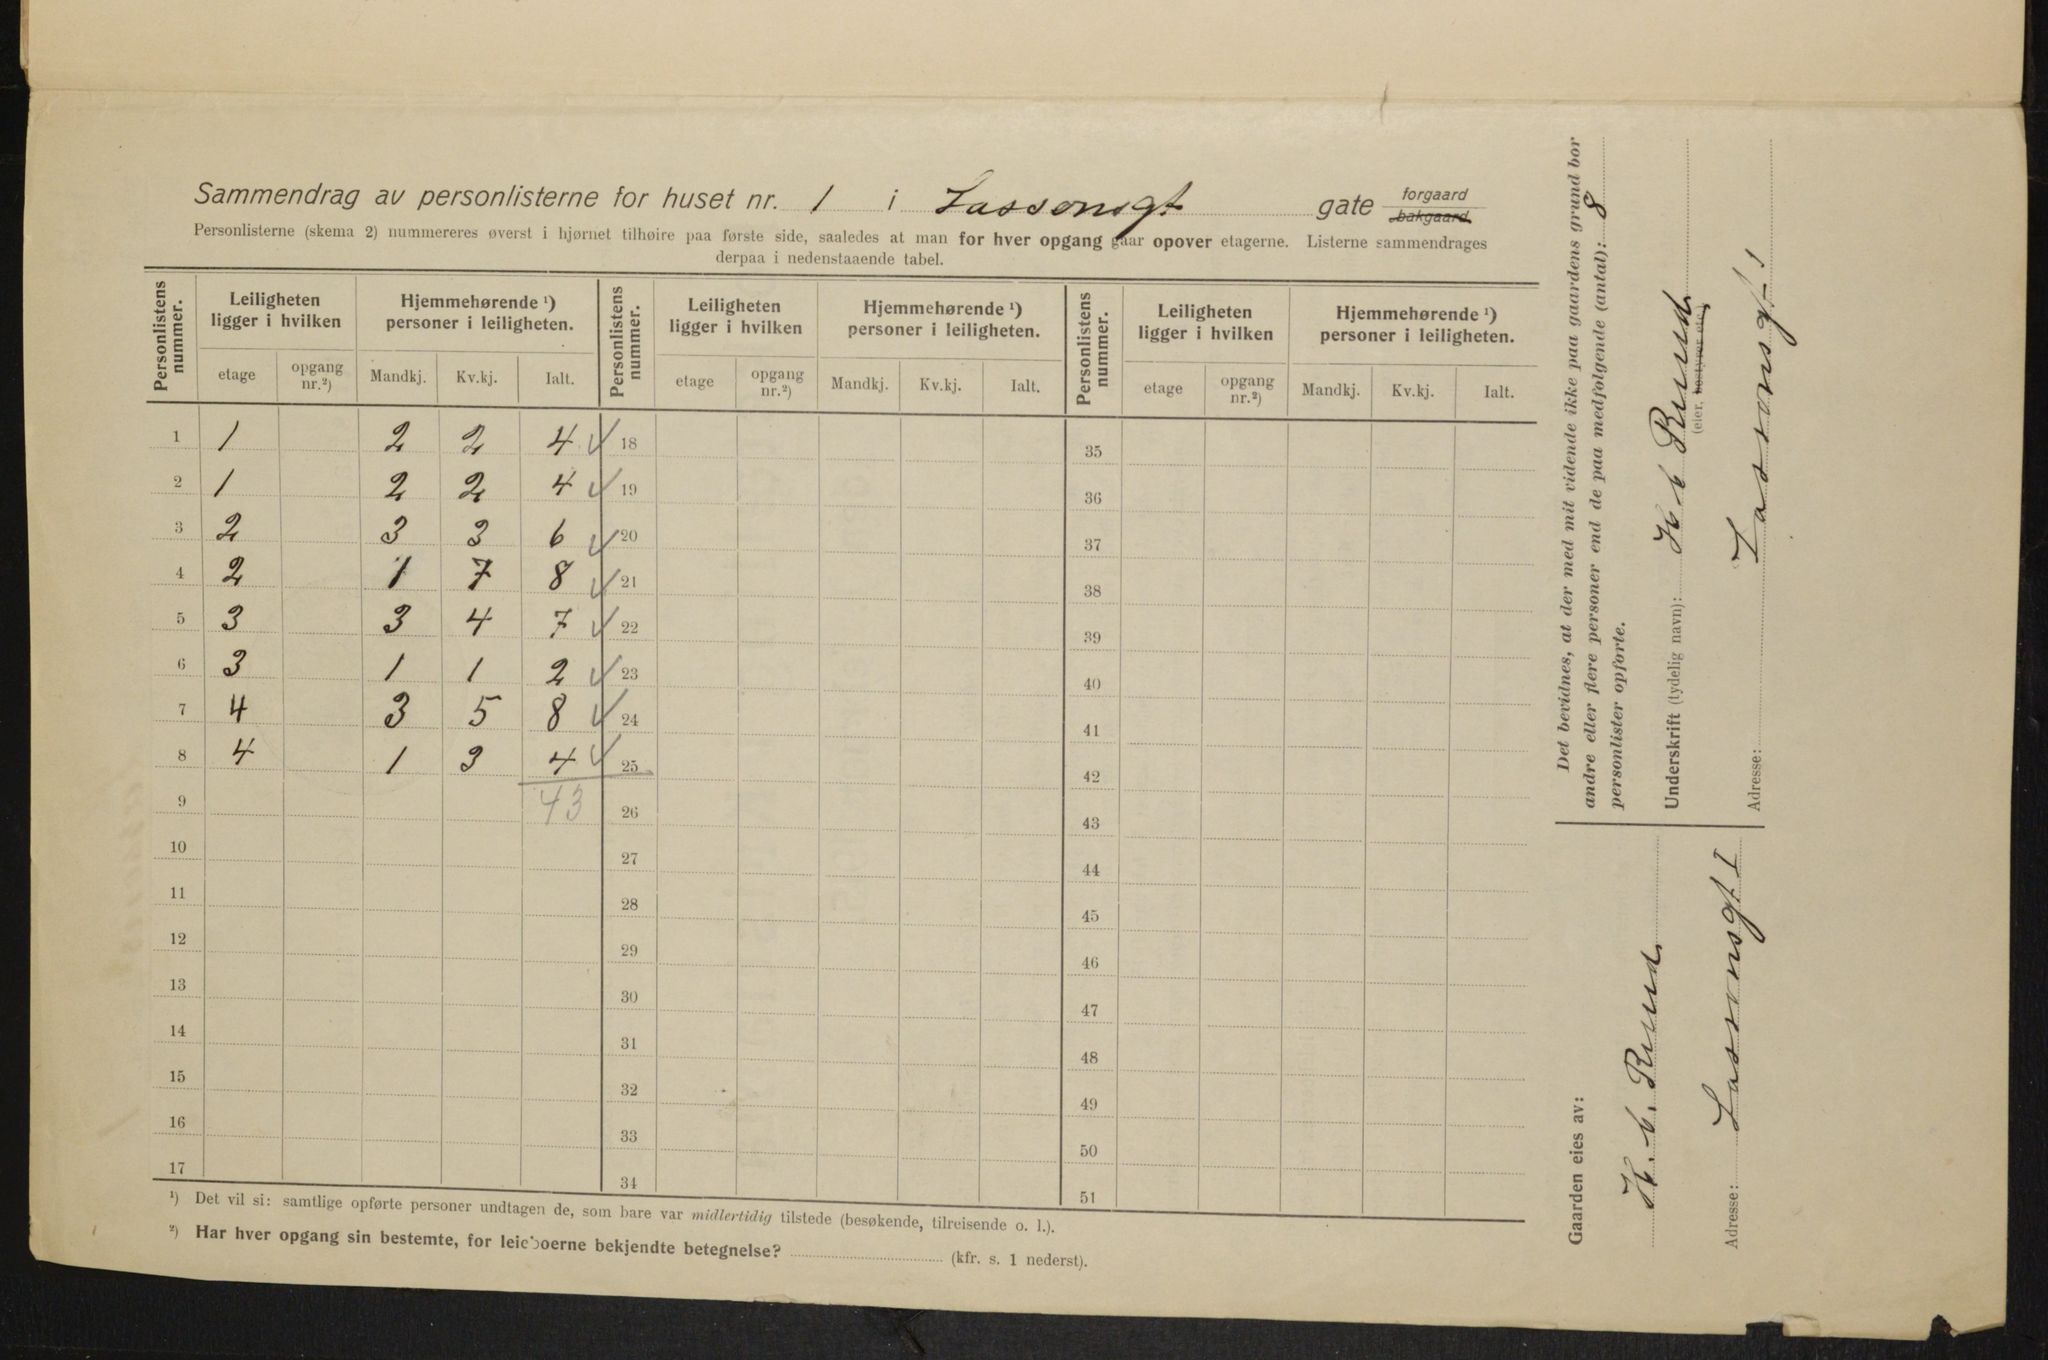 Sammendrag av personlisterne for huset nr. 1 i Lassonsgt gate forgaard bakgaard
Personlisterne (skema 2) nummereres øverst i hjørnet tilhøire paa første side, saaledes at man for hver opgang gaar opover etagerne. Listerne sammendrages
derpaa i nedenstaaende tabel.
Personlistens nummer. Leiligheten ligger i hvilken Hjemmehørende ¹) personer i leiligheten. Personlistens nummer. Leiligheten ligger i hvilken Hjemmehørende ¹) personer i leiligheten. Personlistens nummer. Leiligheten ligger i hvilken Hjemmehørende ¹) personer i leiligheten.
etage opgang nr.²) Mandkj. Kv.kj. Ialt. etage opgang nr.²) Mandkj. Kv.kj. Ialt. etage opgang nr.²) Mandkj. Kv.kj. Ialt.
1 1 2 2 4 18 35
2 1 2 2 4 19 36
3 2 3 3 6 20 37
4 2 1 7 8 21 38
5 3 3 4 7 22 39
6 3 1 1 2 23 40
7 4 3 5 8 24 41
8 4 1 3 4 25 42
9 43 26 43
10 27 44
11 28 45
12 29 46
13 30 47
14 31 48
15 32 49
16 33 50
17 34 51
¹) Det vil si: samtlige opførte personer undtagen de, som bare var midlertidig tilstede (besøkende, tilreisende o. l.).
²) Har hver opgang sin bestemte, for leieboerne bekjendte betegnelse? (kfr. s. 1 nederst).
Det bevidnes, at der med mit vidende ikke paa gaardens grund bor
andre eller flere personer end de paa medfølgende (antal): 8
personlister opførte.
Underskrift (tydelig navn): H C Ruud
(eier, bestyrer etc.)
Adresse: Lassonsgt 1
Gaarden eies av:
H. C. Ruud
Adresse: Lassonsgt 1